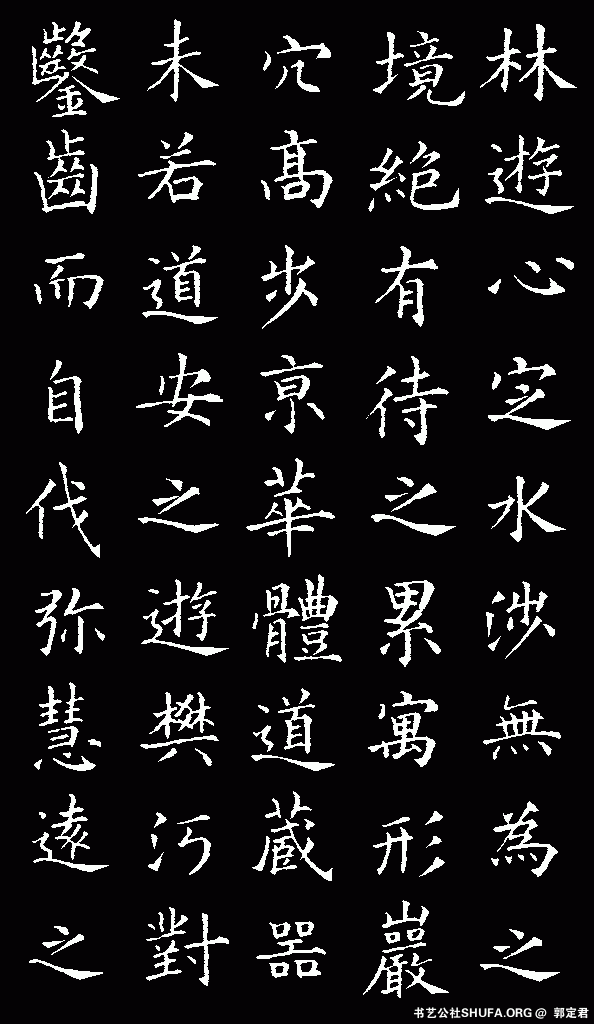 林遊心定水涉無為之
境絕有待之累寓形巖
穴髙步亰華體道蔵器
未若道安之遊樊沔對
鑿齒而自伐弥慧遠之
书艺公社SHUFA.ORG @ 郭定君